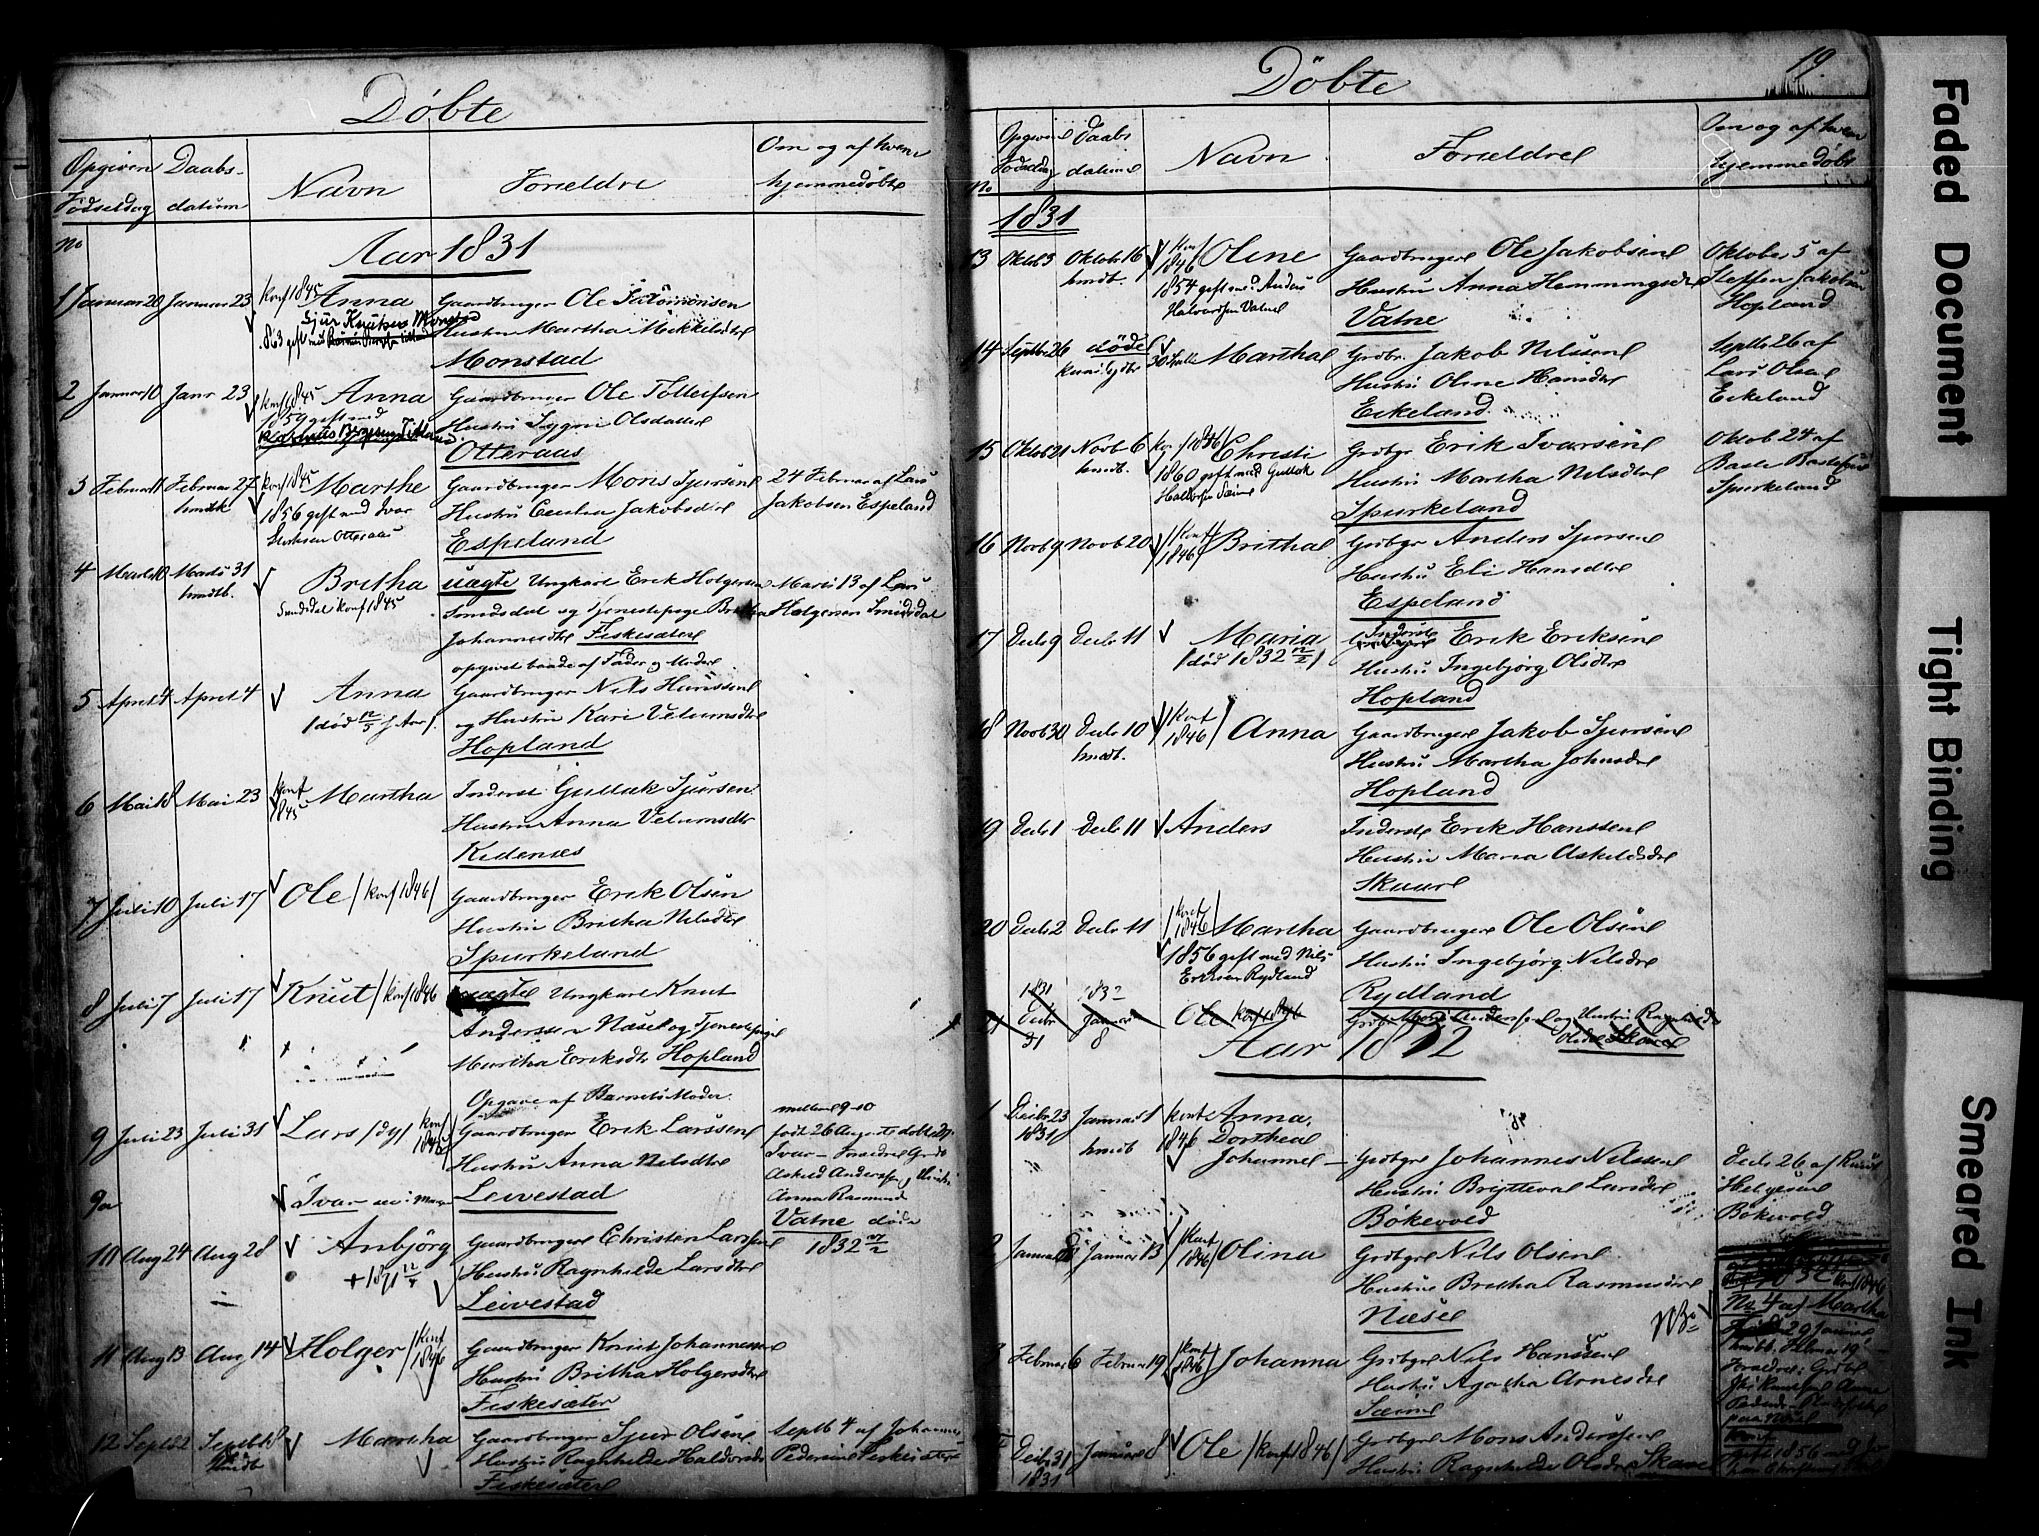 Döbte
Opgiven Födseldag
Daabs-datum
Navn
Forældre
Om og af hvem hjemmedöbte
No
Aar 1831
1 Januar 20 Januar 23 konf 1845 Anna Gaardbruger Ole
Sjur Knutsen Monstad
Hustru Martha Mikkelsdtr
Monstad
2 Januar 10 Janr 23 konf 1845 Anna Gaardbruger Ole Tolleifsen
1859 gift med
Hustru Sygni Olsdatter
Otteraas
3 Februar 11 Februar 27 konf 1845 Marthe Gaardbruger Mons Sjursen 24 Februar af Lars
hmdb
1856 gift med Ivar
Hustru Cecilia Jakobsdtr Jakobsen Espeland
Otteraas
Espeland
4 Marts 10 Marts 31 Britha uägte Ungkarl Erik Holgersen Marts 13 af Lars
hmdb. Smdsdal konf 1845
Smdsdal og Tjenestepige Britha Holgersen Smidsdal
Johannesdtr Fiskesæter
opgivet baade af Fader og Moder
5 April 4 April 4 Anna Gaardbruger Nils Hanssen
(död 12/5 f Aar)
og Hustru Kari Velumsdtr
Hopland
6 Mai 18 Mai 23 konf 1845 Martha Inderst Gullak Sjursen
Hustru Anna Velumsdtr
Kidenæs
7 Juli 10 Juli 17 Ole (konf 1846) Gaardbruger Erik Olsen
Hustru Britha Nilsdtr
Spurkeland
8 Juli 7 Juli 17 Knut (konf 1846 uägte Ungkarl Knut
Anderssen Næse og Tjenestepige
Martha Eriksdtr Hopland
Opgave af Barnets Moder
9 Juli 23 Juli 31 Lars (dy) konf 1846 Gaardbruger Erik Larssen
Hustru Anna Nilsdtr
Leivestad
mellem 9-10
födt 26 August
Ivar - Forældre Grdb
Askild Andersen og Hustru
Anna Rasmusd
Vatne döde
1832
9a Ivar
10 Aug 24 Aug 28 Anbjörg Gaardbruger Christen Larssen
+ 1871
Hustru Ragnhilde Larsdtr
Leivestad
11 Aug 13 Aug 14 Holger (konf 1846 Gaardbruger Knut Johannessen
Hustru Britha Holgersdtr
Fiskesæter
12 Septb 2 Septb 18 Martha Gaardbruger Sjur Olsen Septb 4 af Johannes
hmdb
Hustru Ragnhilde Haldorsdtr Pedersen Fiskesæter
Fiskesæter
Döbte
19.
Opgiven Födseldag
Daabs datum
Navn
Forældre
Om og af hvem hjemmedöbt
No
1831
13 Oktob 3 Oktob 16 konf 1846 Oline Gaardbruger Ole Jakobsen Oktober 5 af
hmdb.
1854 gift med Anders
Halvardsen Vatne
Hustru Anna Hemmingsdtr Steffen Jakobsen
Vatne Hopland
14 Septbr 26 döde Martha Grdbr. Jakob Nilssen Septbr 26 af
Hustru Oline Hansdtr Lars Olsen
Eikeland Eikeland
15 Oktob 21 Novb 6 konf 1846 Christi Grdbgr Erik Ivarsen Oktob 24 af
hmdb. 1860 gift med Gullak
Hustru Martha Nilsdtr Baste Bastesen
Haldorsen Sæim
Spurkeland Spurkeland
16 Novb 9 Novb 20 (konf 1846) Britha Grdbgr Anders Sjursen
Hustru Eli Hansdtr
Espeland
17 Decb 9 Decb 11 Maria Inderst Erik Eriksen
(död 1832 12/2)
Hustru Ingebjörg Olsdtr
Hopland
18 Novb 30 Decb 10 (konf 1846) Anna Gaardbruger Jakob Sjursen
hmdb.
Hustru Martha Johnsdtr
Hopland
19 Decb 1 Decb 11 Anders Inderst Erik Hanssen
Hustru Maria Askildsdtr
Skaar
20 Decb 2 Decb 11 (konf 1846) Martha Gaardbruger Ole Olsen
1856 gift med Nils
Eriksen Rydland
Hustru Ingebjörg Nilsdtr
Rydland
21 1831 Decbr 31 1832 Januar 8 Ole konf 1846 Grdbr Mons Anderssen og Hustru Ragnhilde
Olsdtr Skaar
Aar 1832
1 Decbr 23 1831 Januar 1 hmdb konf 1846 Anna Dorthea
Johanne - Grdbgr Johannes Nilssen Decb 26 af Knut
Hustru Brytteva Larsdtr Helgesen
Bökevold Bökevold
2 Januar Januar 13 (konf 1846) Olina Grdbgr Nils Olsen
Hustru Britha Rasmusdtr
Næse
NB
konf 1846
No 4 af Martha
29 Januar
hmdb. Februar 19
Forældre: Grdbr
3 Februar 6 Februar 19 (konf 1846) Johanna Grdbgr Nils Hanssen
Hustru Agatha Arnesdtr
Sæim
Decbr 31 1831 Januar 8 Ole (konf 1846) Grdbgr Mons Anderssen
Hustru Ragnhilde Olsdtr Skaar
gift 1856 med
Faded Document
Tight Binding
Smeared Ink